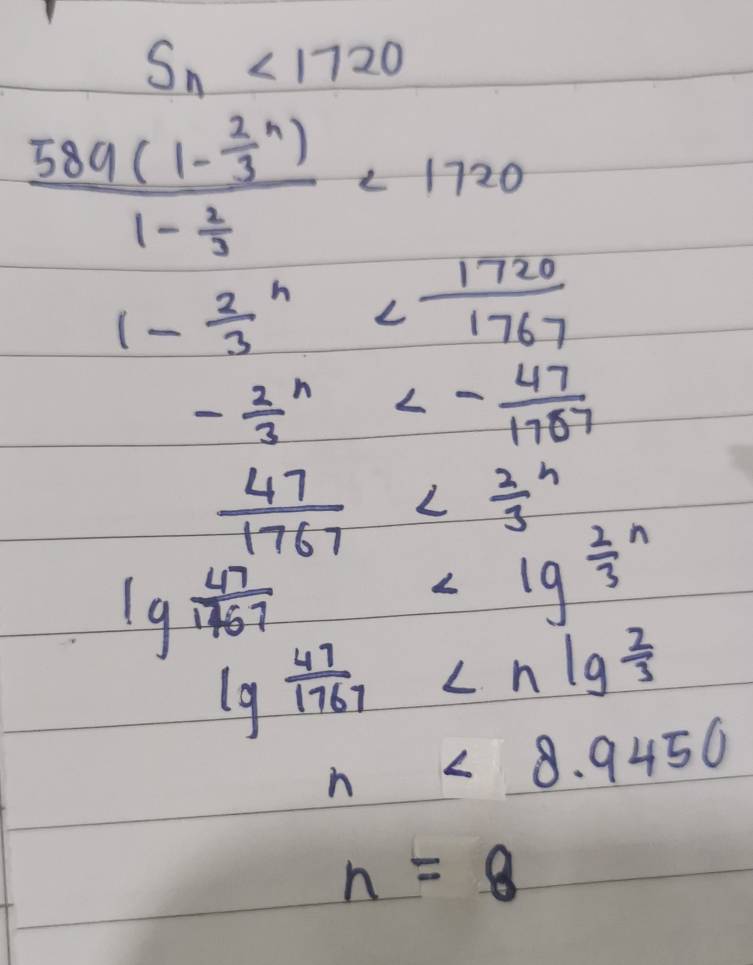 Sₙ < 1720
589(1 - 2/3ⁿ) / (1 - 2/3) < 1720
1 - 2/3ⁿ < 1720/1767
- 2/3ⁿ < - 47/1767
47/1767 < 2/3ⁿ
lg 47/1767 < lg 2/3ⁿ
lg 47/1767 < n lg 2/3
n < 8.9450
n = 8